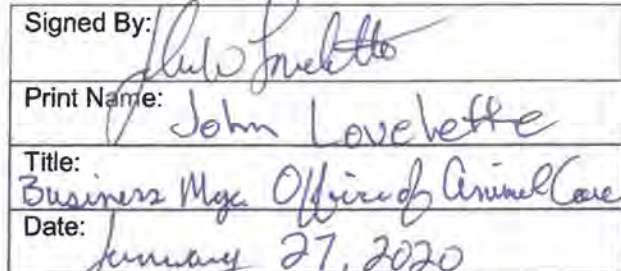 Signed By:
Print Name: John Lovelette
Title:
Business Mgr. Office of Animal Care
Date: January 27, 2020